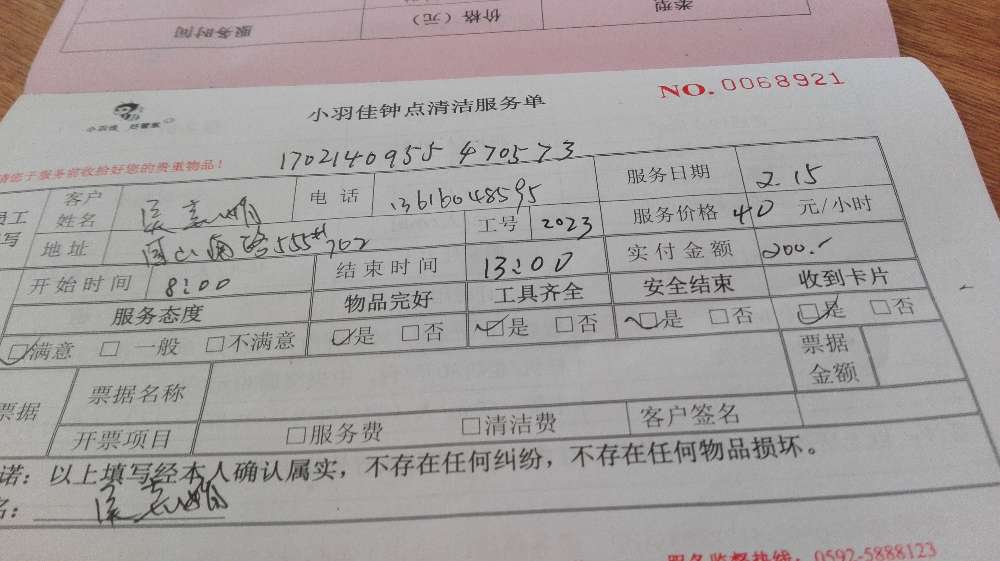 类型
价格（元）
服务时间
小羽佳 好管家
小羽佳钟点清洁服务单
NO. 0068921
请您于服务前收拾好您的贵重物品！
1702140955 470573
员工
客户姓名
电话 13616048595
服务日期 2.15
地址
555# 702
工号 2023
服务价格 40 元/小时
开始时间 8:00
结束时间 13:00
实付金额 200.-
服务态度 物品完好 工具齐全 安全结束 收到卡片
☑满意 □ 一般 □不满意 ☑是 □否 ☑是 □否 ☑是 □否 ☑是 □否
票据
票据名称
票据金额
开票项目 □服务费 □清洁费 客户签名
诺：以上填写经本人确认属实，不存在任何纠纷，不存在任何物品损坏。
名：
服务监督热线：0592-5888123